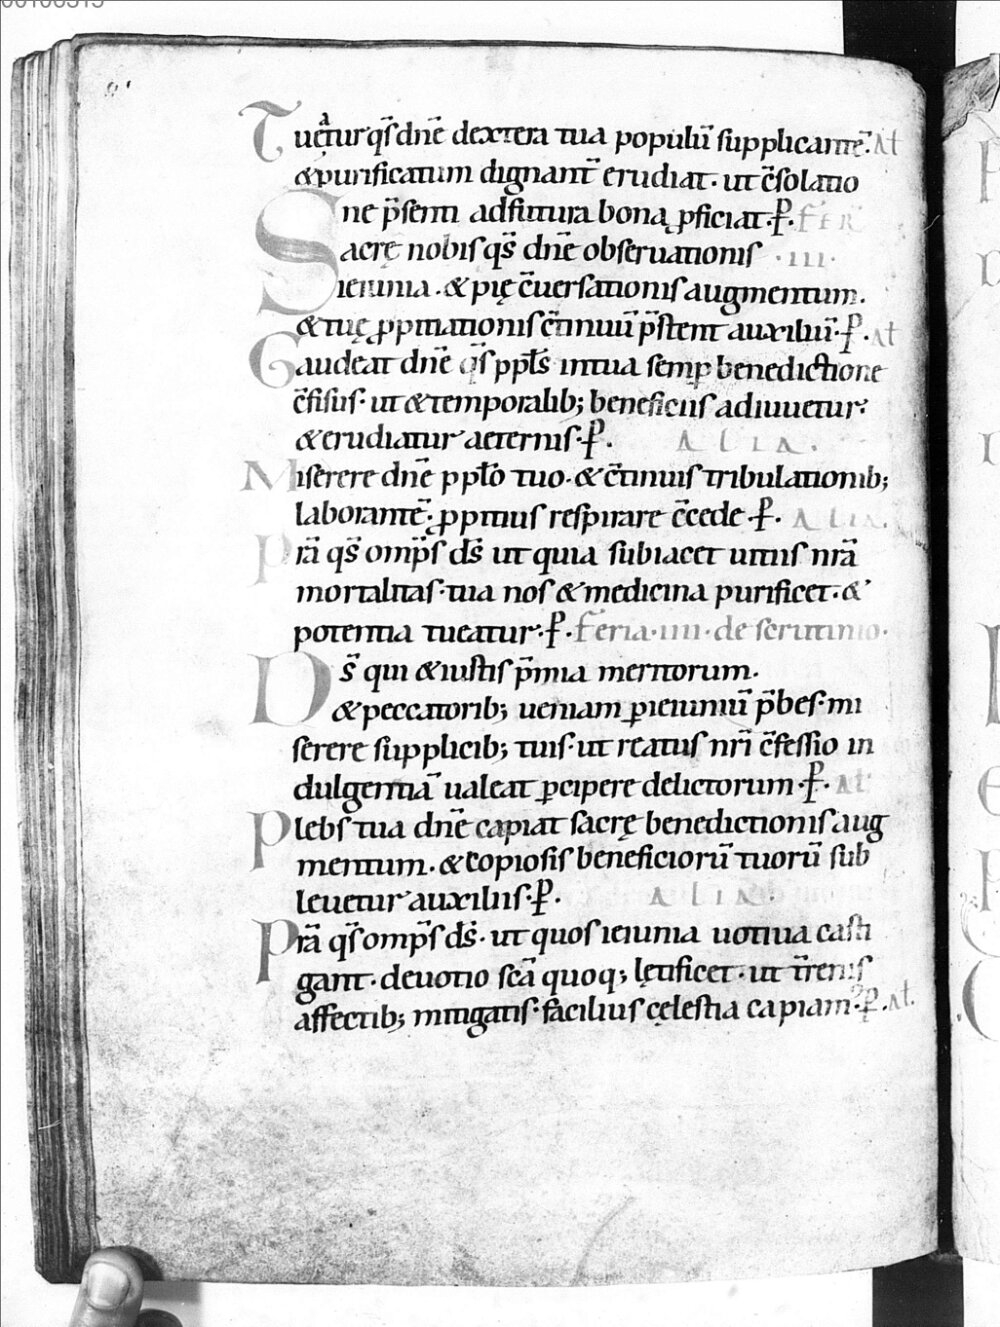 Tueatur qs̄ dn̄e dextera tua populū supplicantē. At
&purificatum dignant̄ erudiat. ut c̄solatio
ne p̄senti adfutura bona ꝓficiat. P̄. FER̄
Sacrę nobis qs̄ dn̄e obseruationis .III.
ieiunia. & pię c̄uersationis augmentum.
& tuę ꝓpitiationis c̄tinuū p̄stent auxiliū. P̄. At
Gaudeat dn̄e qs̄ ppl̄s in tua semꝑ benedictione
c̄fisus. ut & temporalib; beneficiis adiuuetur.
& erudiatur aeternis. P̄. ALIA.
Miserere dn̄e ppl̄o tuo. & c̄tinuis tribulationib;
laborantē. ꝓpitius respirare c̄cede. P̄. ALIA.
Pr̄a qs̄ omp̄s ds̄ ut quia subiacet uitiis nr̄a
mortalitas. tua nos & medicina purificet. &
potentia tueatur. P̄. Feria. IIII. de scrutinio.
Ds̄ qui & iustis p̄mia meritorum.
& peccatorib; ueniam ꝑ ieiuniū p̄bes. mi
serere supplicib; tuis. ut reatus nr̄i c̄fessio in
dulgentiā ualeat ꝑcipere delictorum. P̄. At
Plebs tua dn̄e capiat sacrę benedictionis aug
mentum. & copiosis beneficiorū tuorū sub
leuetur auxiliis. P̄. ALIA
Pr̄a qs̄ omp̄s ds̄. ut quos ieiunia uotiua casti
gant. deuotio sc̄a quoq; lętificet. ut t̄renis
affectib; mitigatis. facilius cęlestia capiam. P̄. At.